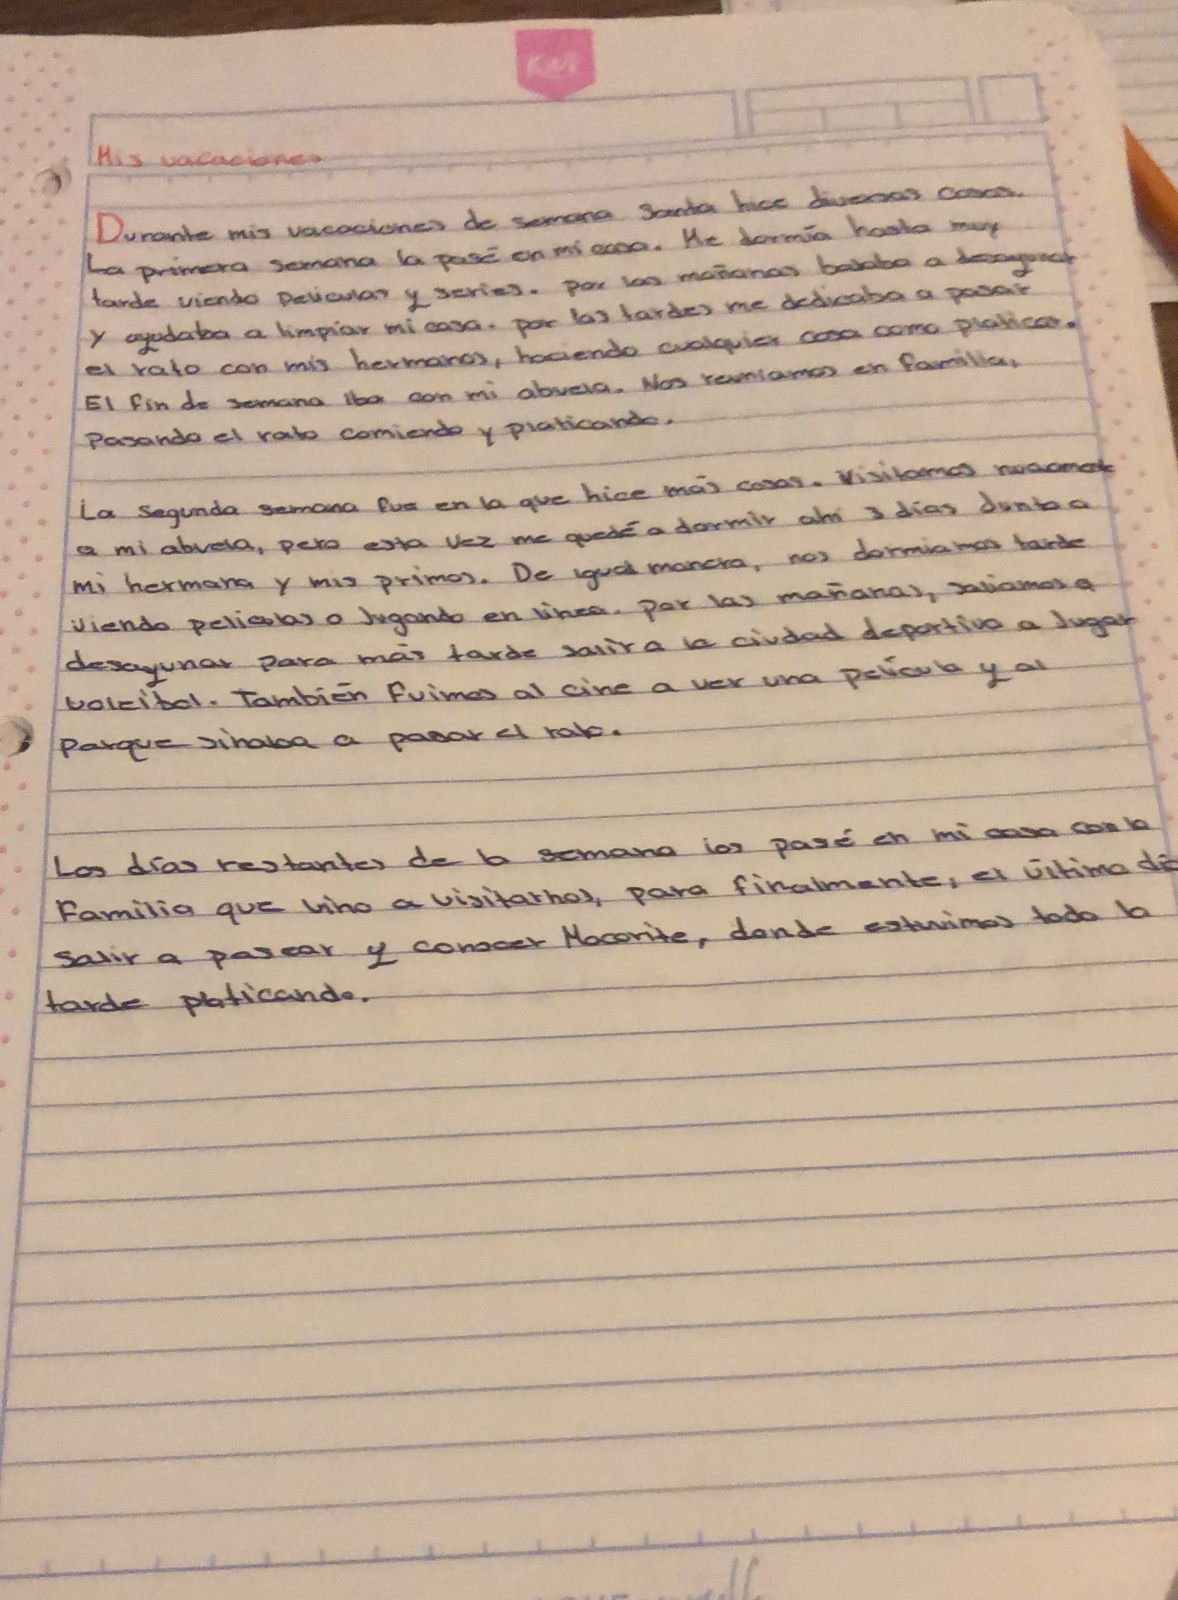 Kiut
Mis vacaciones
Durante mis vacaciones de semana Santa hice diversas cosas.
La primera semana la pasé en mi casa. Me dormía hasta muy
tarde viendo peliculas y series. por las mañanas bajaba a desayunar
y ayudaba a limpiar mi casa. por las tardes me dedicaba a pasar
el rato con mis hermanos, haciendo cualquier cosa como platicar.
El fin de semana iba con mi abuela. Nos reuniamos en familia,
Pasando el rato comiendo y platicando.
La Segunda semana fue en la que hice más cosas. Visitamos nuevamente
a mi abuela, pero esta vez me quedé a dormir ahí 3 días Junto a
mi hermana y mis primos. De igual manera, nos dormiamos tarde
viendo peliculas o Jugando en linea. Por las mañanas, saliamos a
desayunar para más tarde salir a la ciudad deportiva a Jugar
voleibol. También fuimos al cine a ver una película y al
Parque sinaloa a pasar el rato.
Los días restantes de la semana los pasé en mi casa con la
Familia que vino a visitarnos, para finalmente, el último día
Salir a pasear y conocer Mocorito, donde estuvimos toda la
tarde platicando.